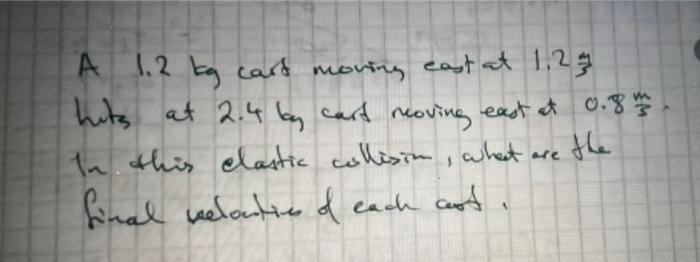 A 1.2 kg cart moving east at 1.2 m/s
hits at 2.4 kg cart moving east at 0.8 m/s.
In this elastic collision, what are the
final velocities of each cart.